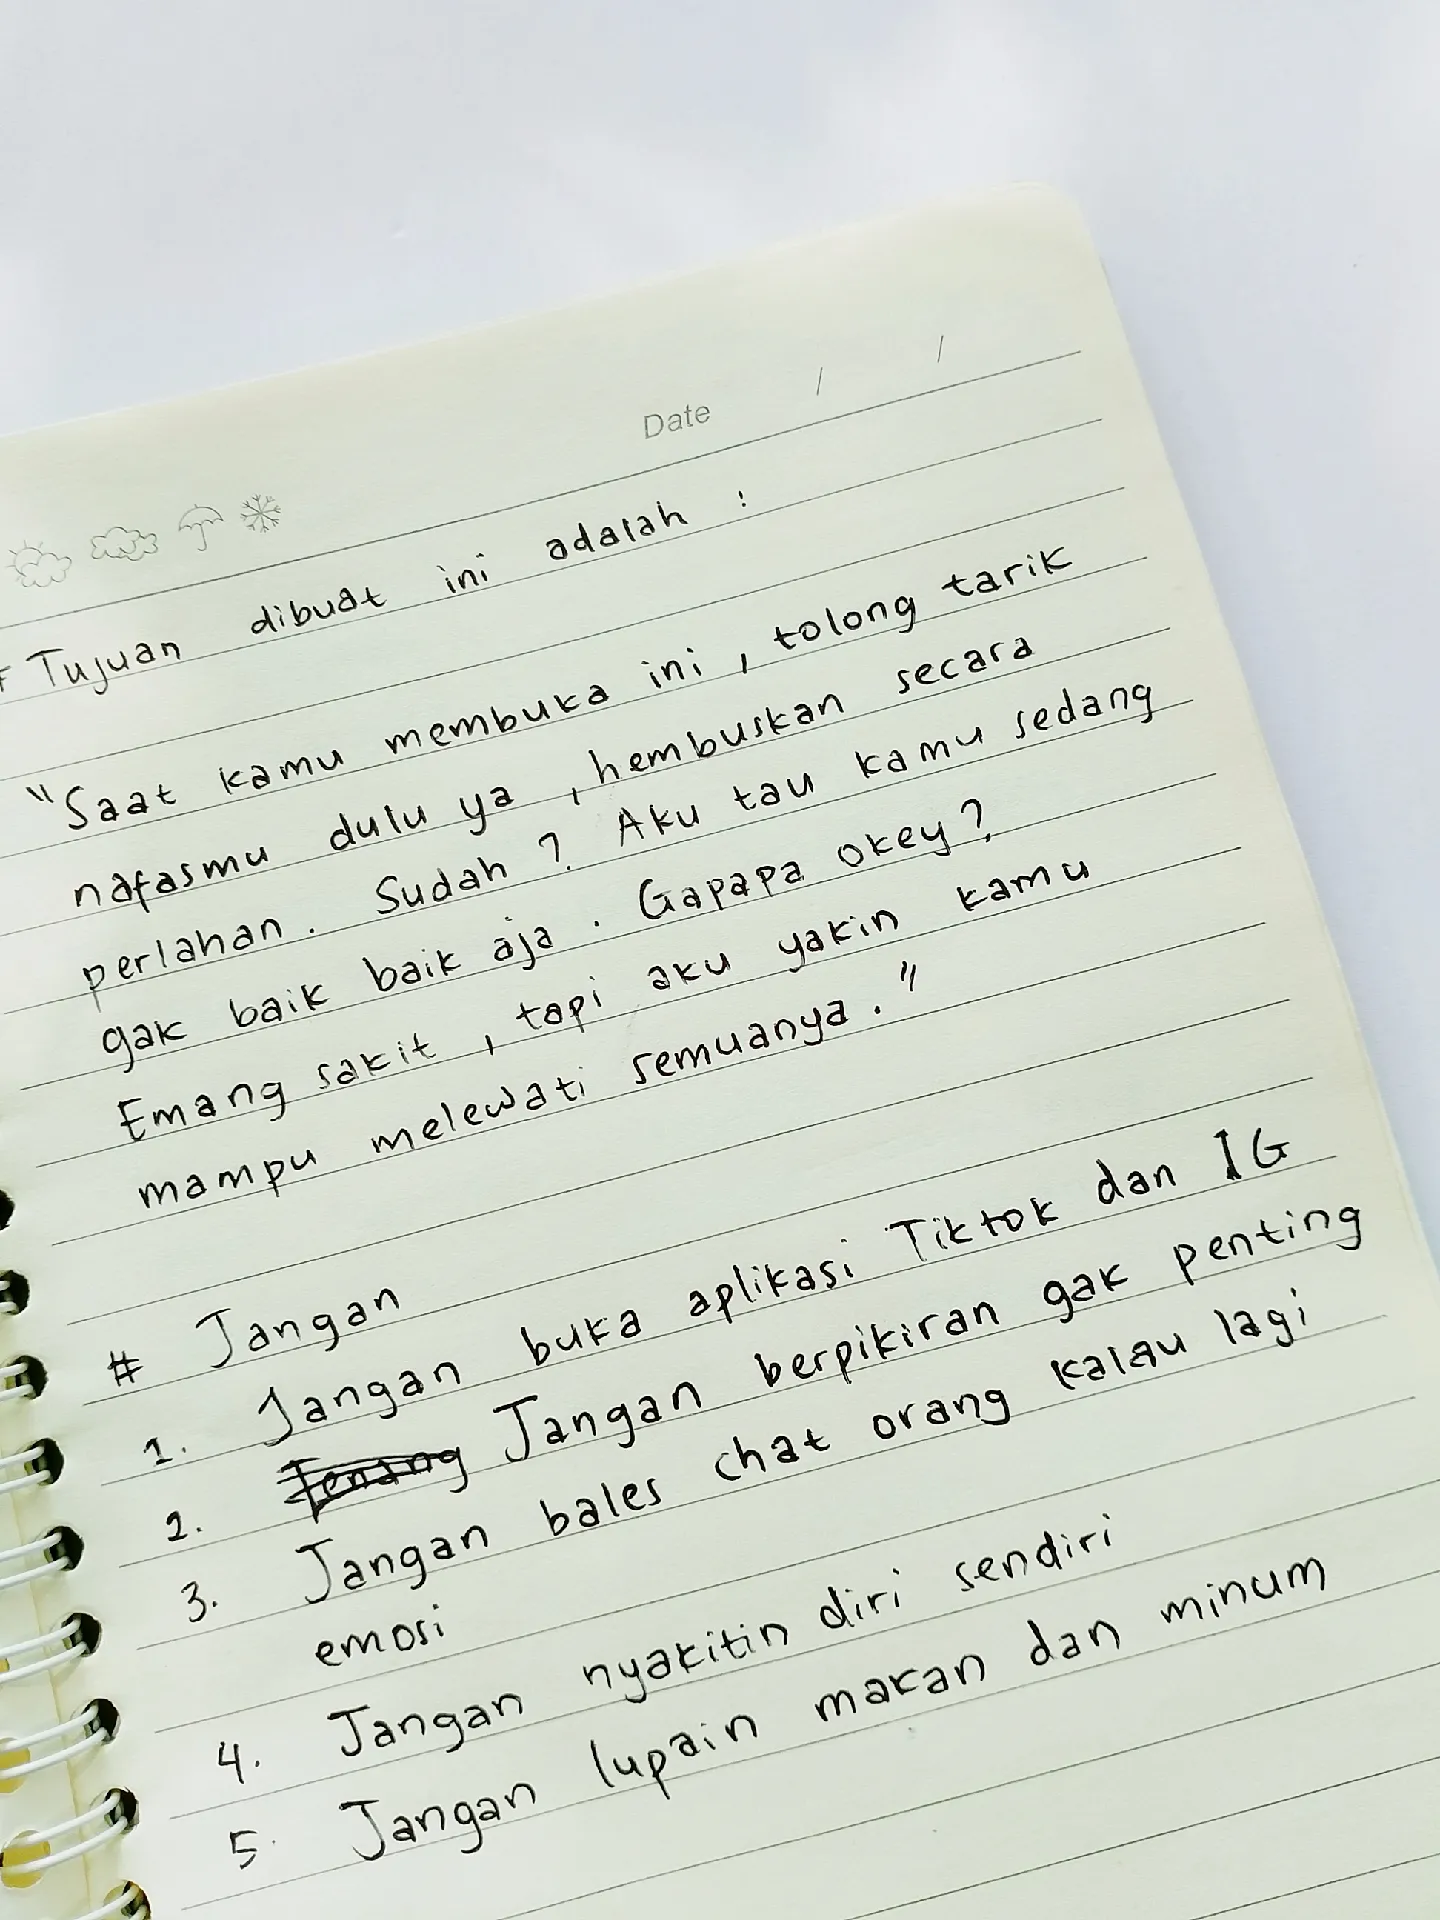 Date / /
# Tujuan dibuat ini adalah :
"Saat kamu membuka ini, tolong tarik
nafasmu dulu ya, hembuskan secara
perlahan. Sudah? Aku tau kamu sedang
gak baik baik aja. Gapapa okey?
Emang sakit, tapi aku yakin kamu
mampu melewati semuanya."
# Jangan
1. Jangan buka aplikasi Tiktok dan IG
2. Jangan berpikiran gak penting
3. Jangan bales chat orang kalau lagi
emosi
4. Jangan nyakitin diri sendiri
5. Jangan lupain makan dan minum